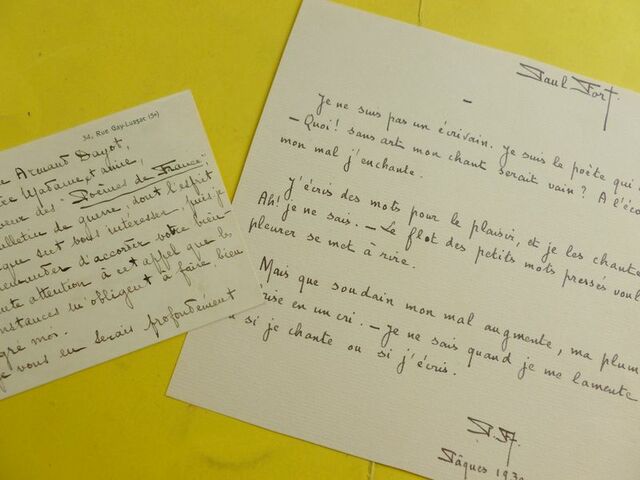 34, Rue Gay-Lussac (5e)
Armand Dayot,
Madame et amie,
des Poèmes de France,
bulletin de guerre, dont l'esprit
sut vous intéresser, puis-je
d'accorder votre bien-
attention à cet appel que les
m'obligent à faire, bien
gré moi.
vous en serais profondément
Paul Fort.
–
Je ne suis pas un écrivain. Je suis le poète qui
– Quoi! sans art mon chant serait vain? A l'éco
mon mal j'enchante.
J'écris des mots pour le plaisir, et je les chante
Ah! je ne sais. – Le flot des petits mots pressés voul
pleurer se met à rire.
Mais que soudain mon mal augmente, ma plum
en un cri. – Je ne sais quand je me lamente
si je chante ou si j'écris.
P.F.
Pâques 193